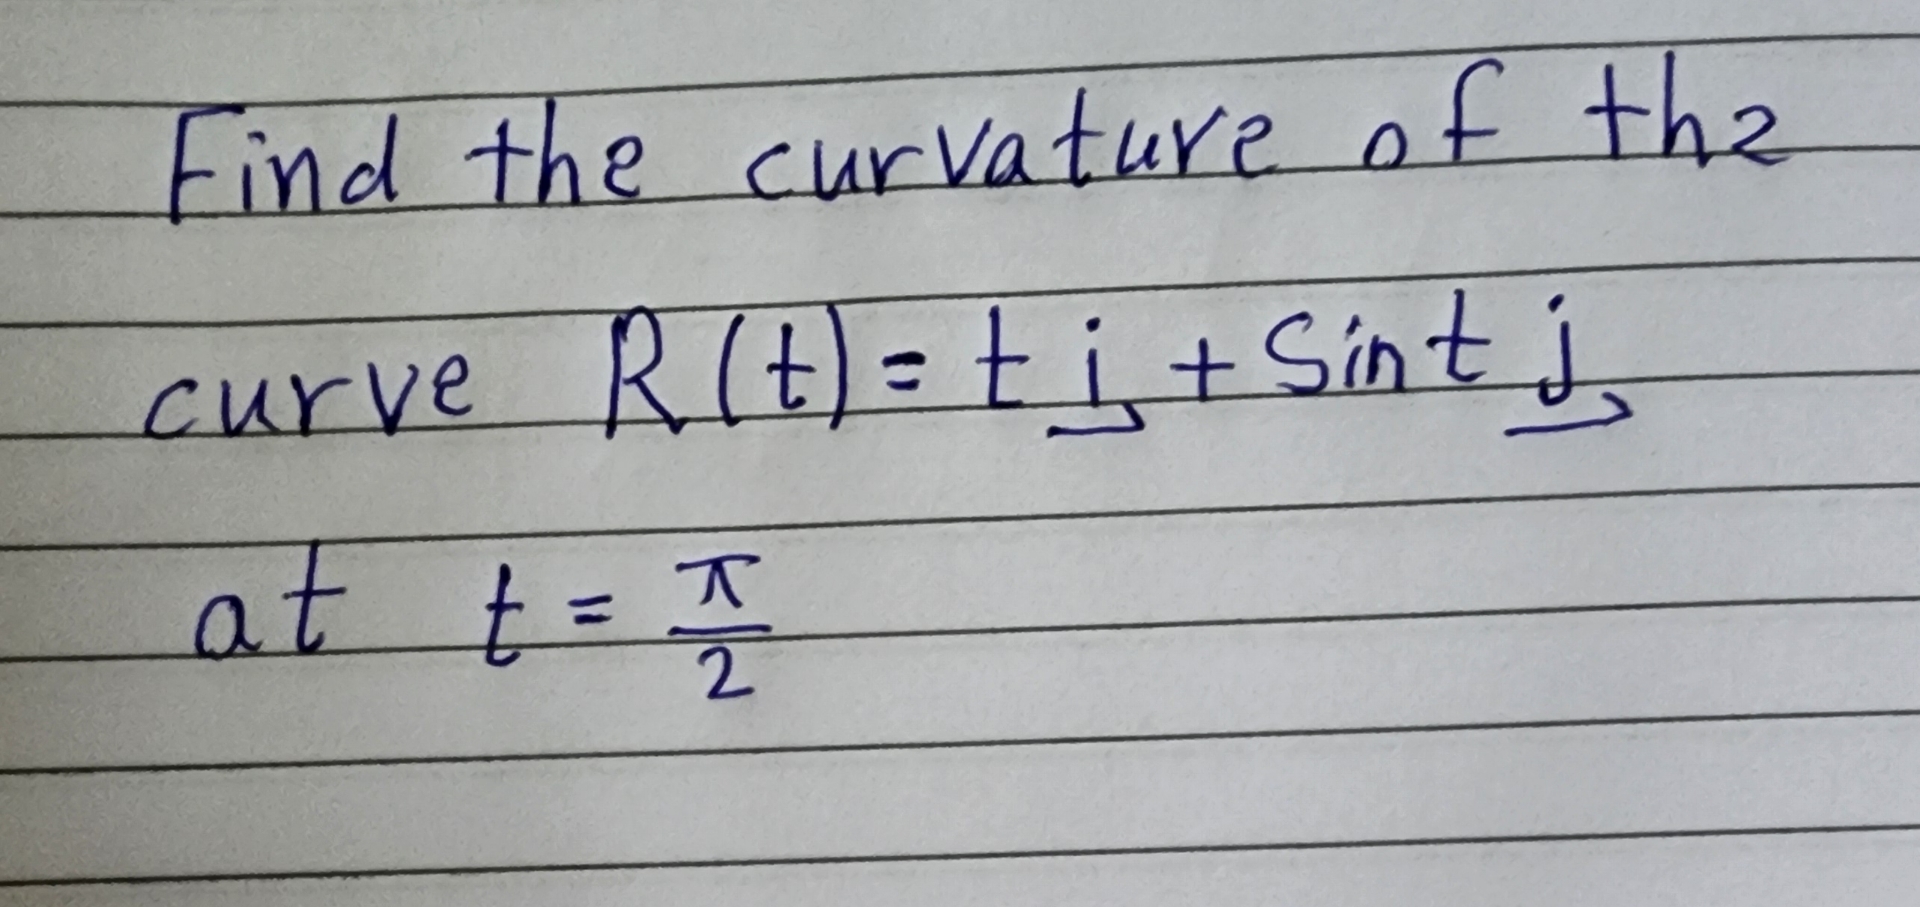 Find the curvature of the
curve R(t) = t i + Sin t j
at t = π/2